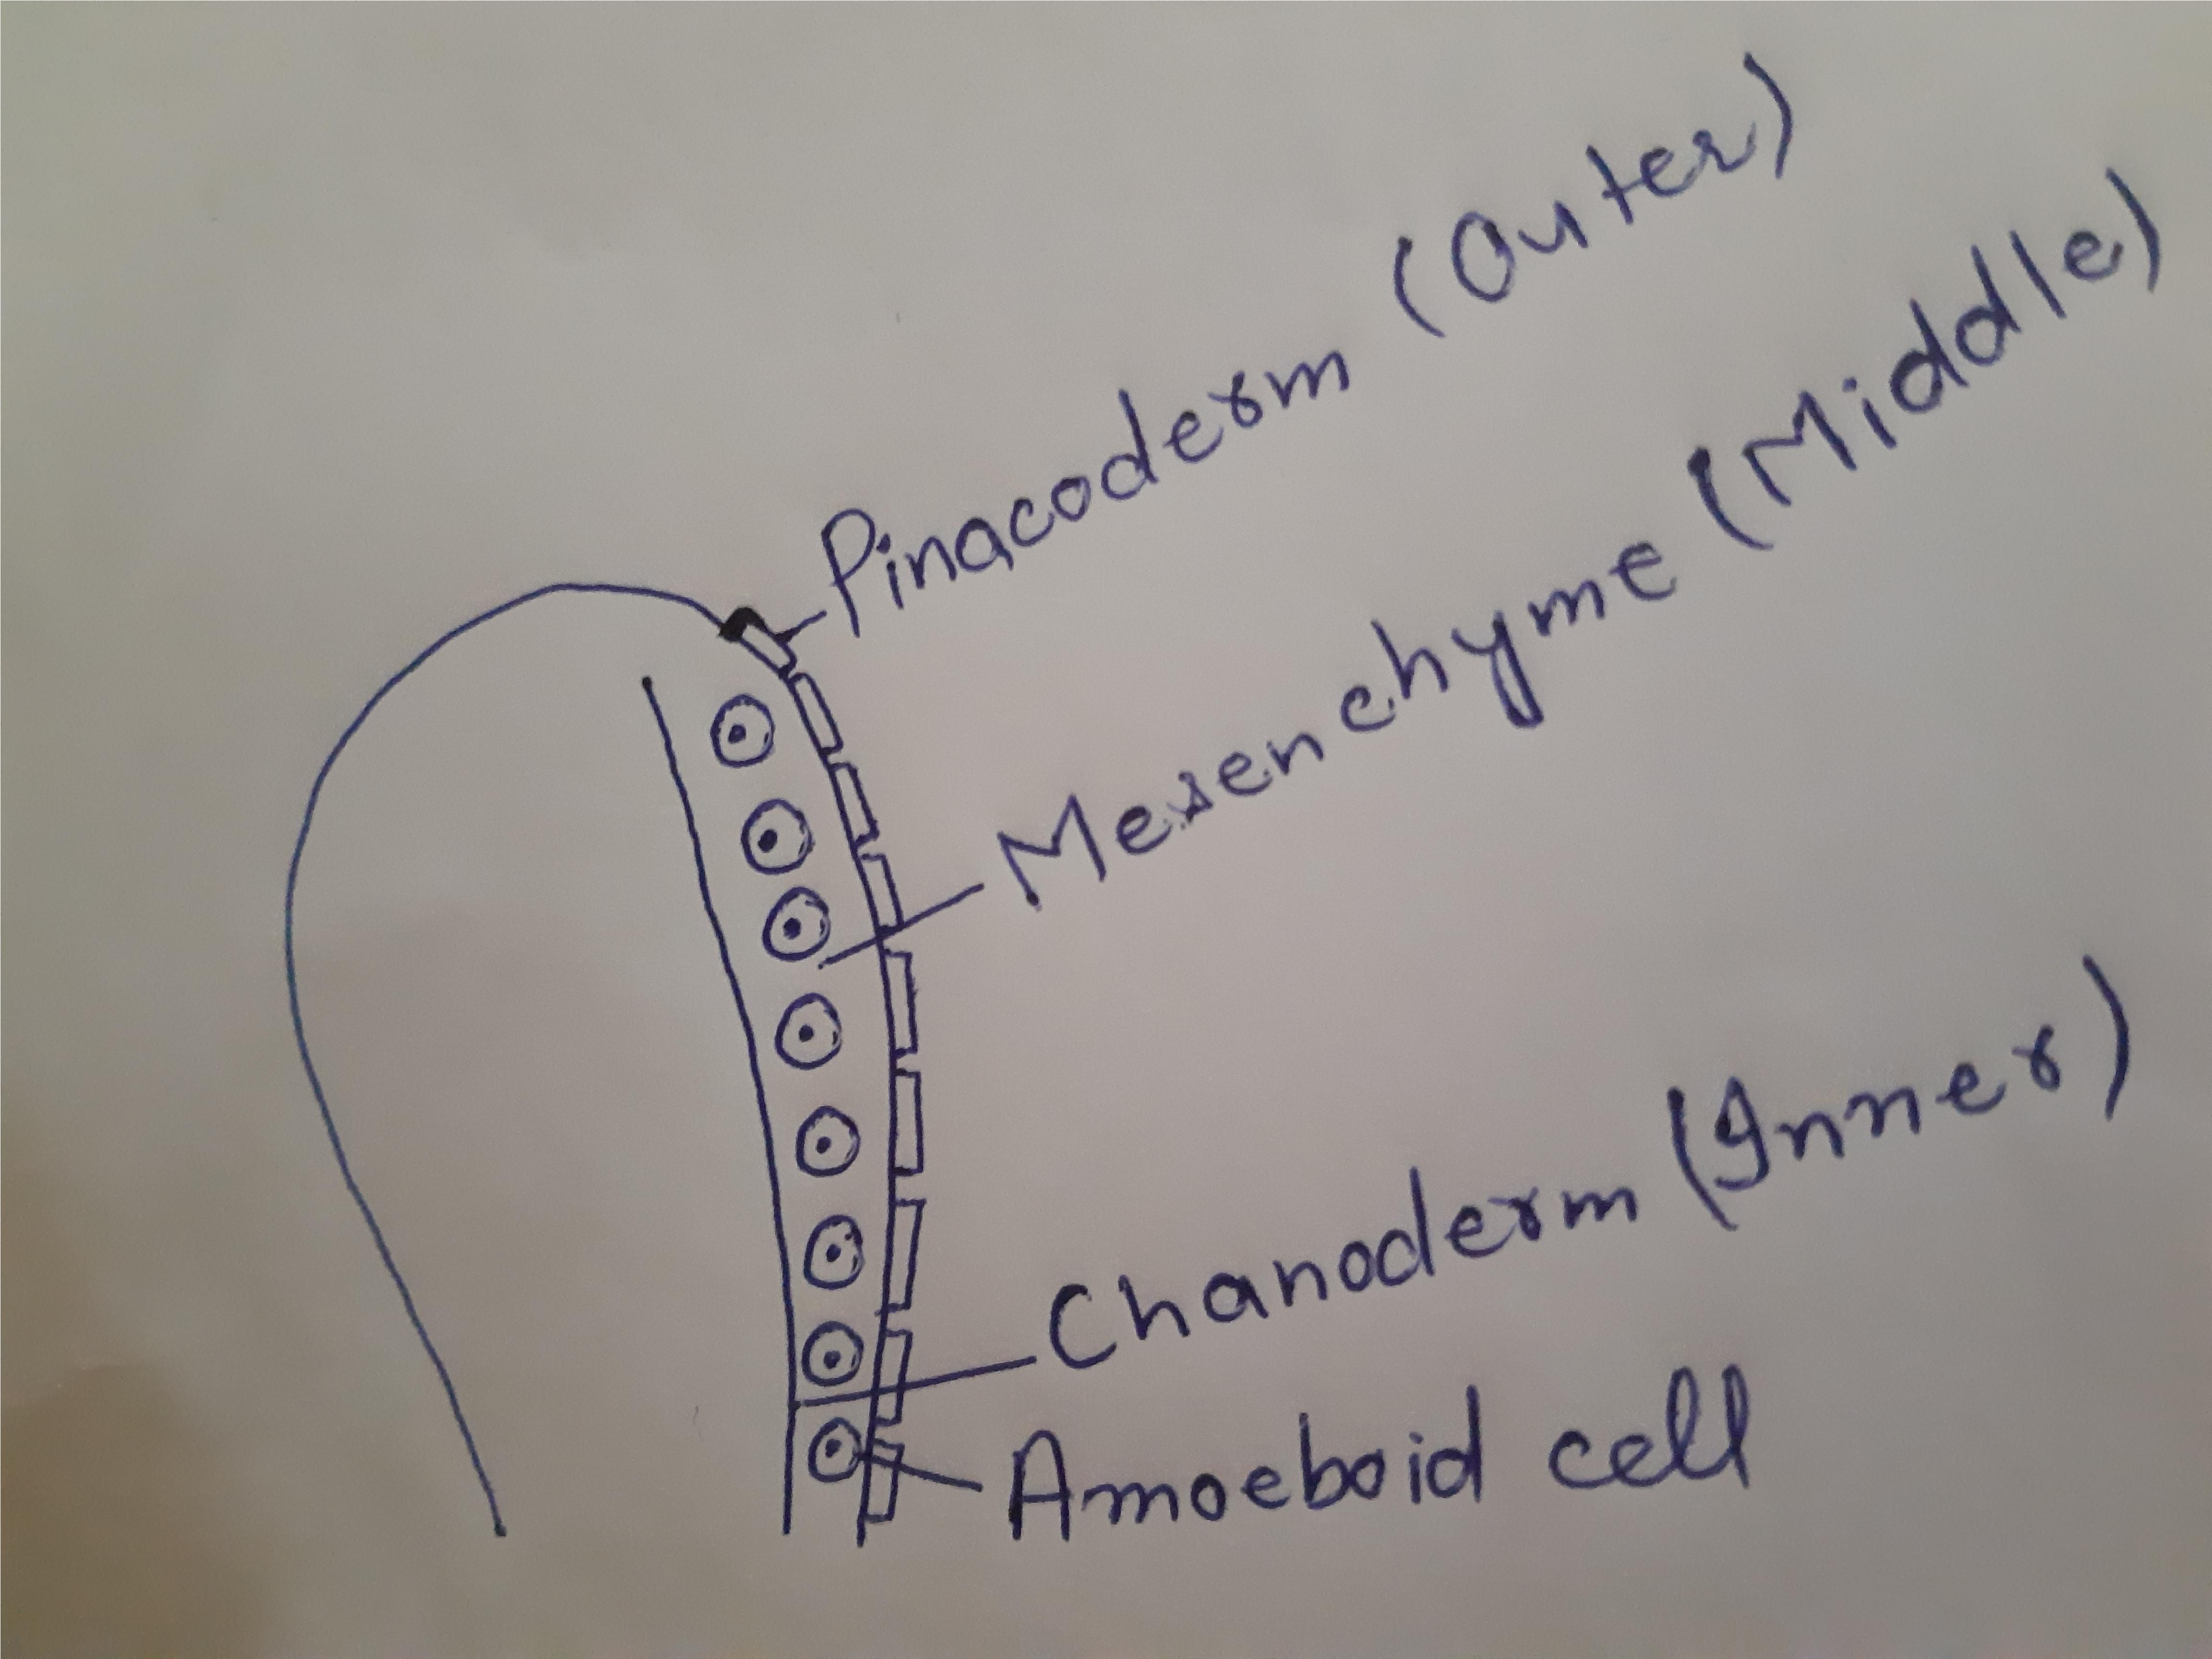 Pinacoderm (Outer)
Mesenchyme (Middle)
Chanoderm (Inner)
Amoeboid cell